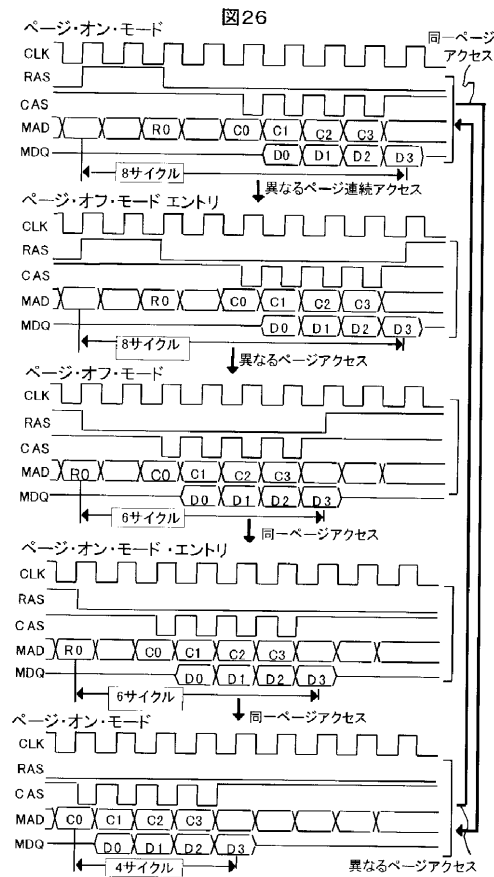 図26
ページ・オン・モード
同一ページ
アクセス
CLK
RAS
CAS
MAD R0 C0 C1 C2 C3
MDQ D0 D1 D2 D3
8サイクル
異なるページ連続アクセス
ページ・オフ・モード エントリ
CLK
RAS
CAS
MAD R0 C0 C1 C2 C3
MDQ D0 D1 D2 D3
8サイクル
異なるページアクセス
ページ・オフ・モード
CLK
RAS
CAS
MAD R0 C0 C1 C2 C3
MDQ D0 D1 D2 D3
6サイクル
同一ページアクセス
ページ・オン・モード・エントリ
CLK
RAS
CAS
MAD R0 C0 C1 C2 C3
MDQ D0 D1 D2 D3
6サイクル
同一ページアクセス
ページ・オン・モード
CLK
RAS
CAS
MAD C0 C1 C2 C3
MDQ D0 D1 D2 D3
4サイクル
異なるページ
アクセス